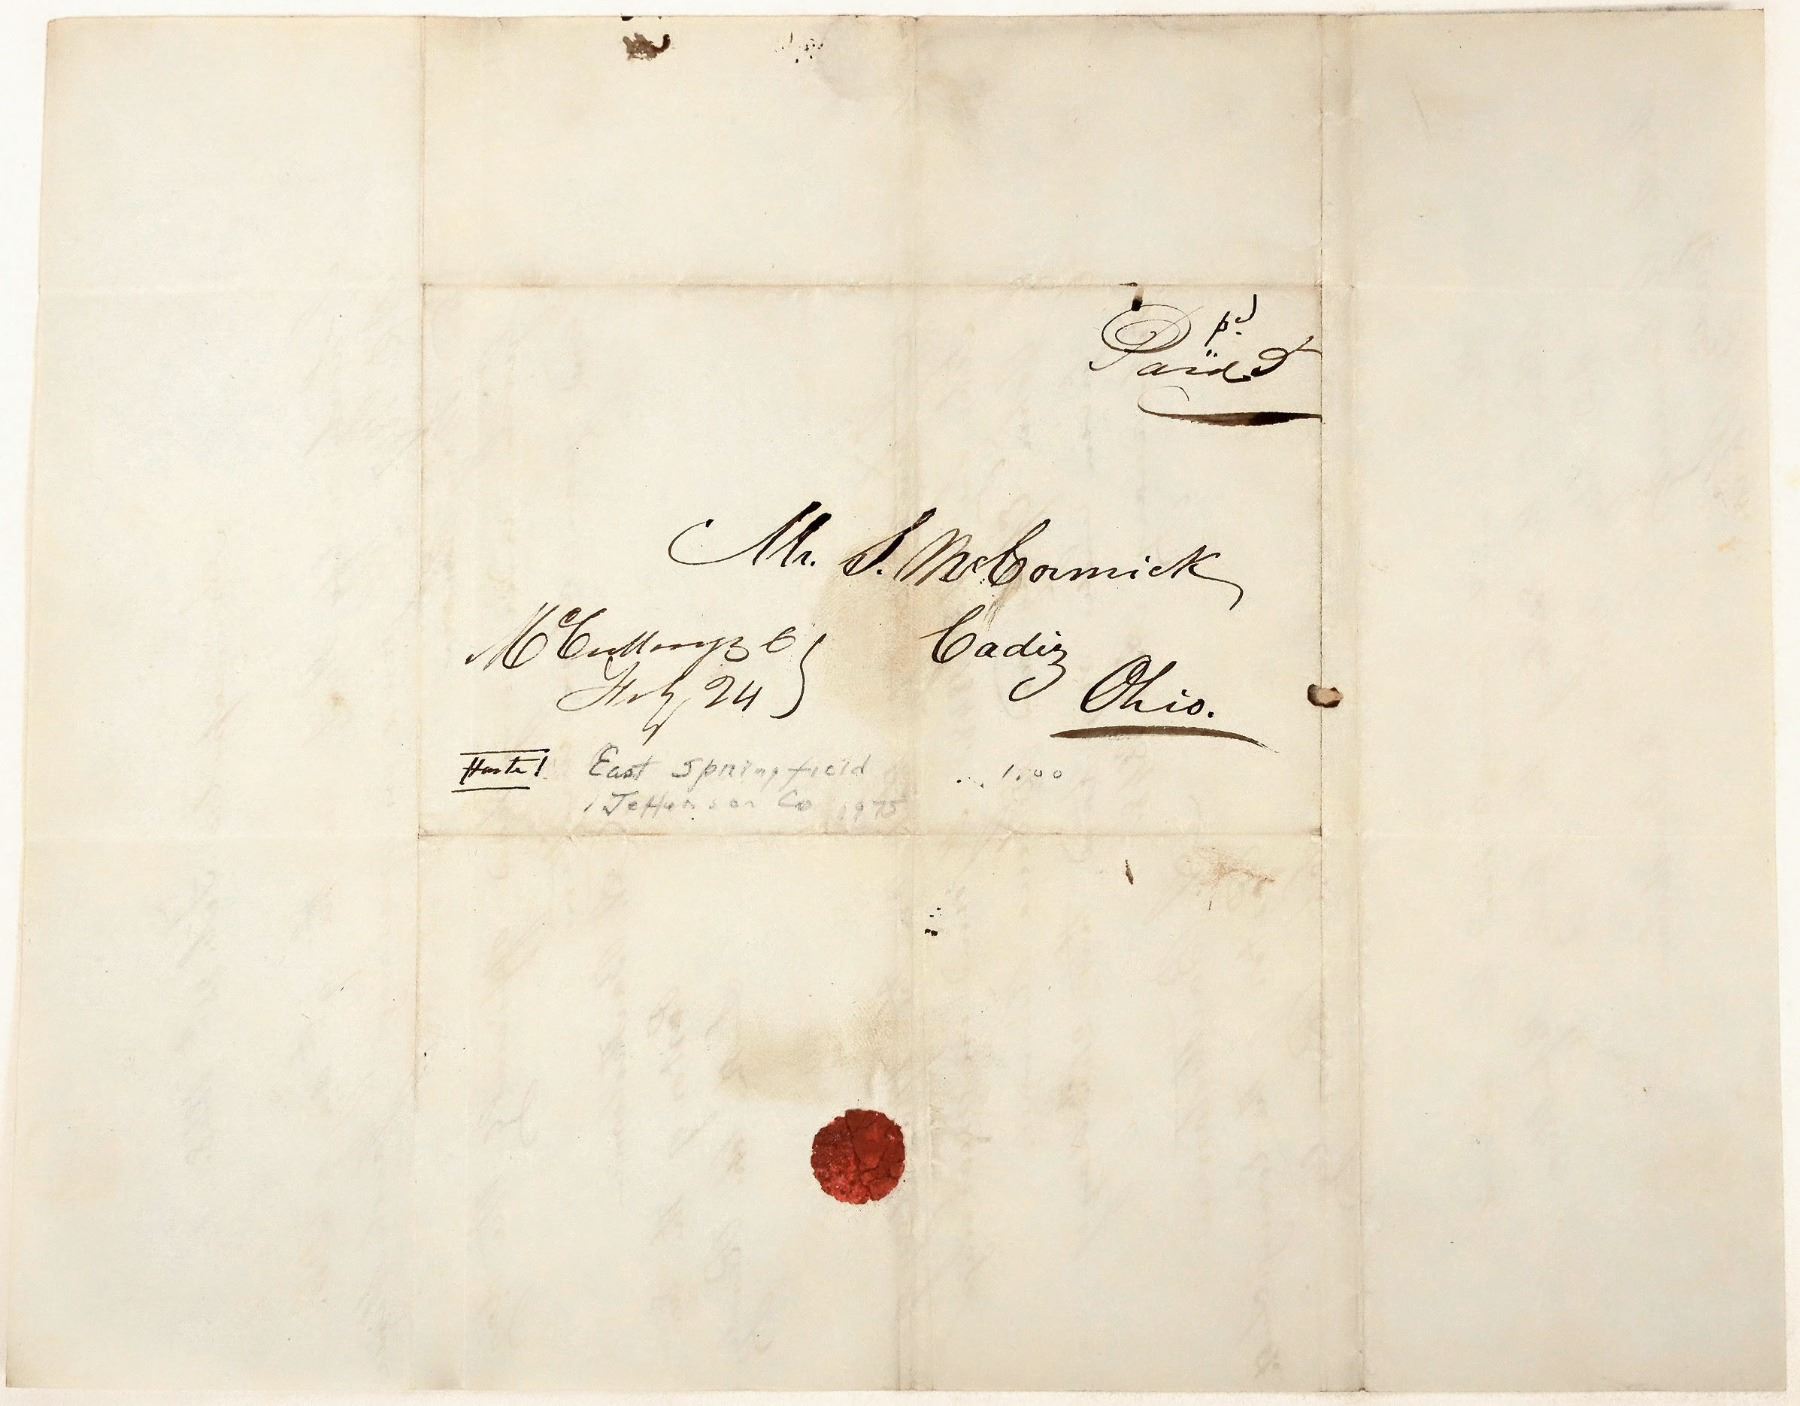 pd
Paid 5
Mr. S. McCormick
Cadiz
Ohio.
24
Haste!
East Springfield
Jefferson Co 1975
1.00